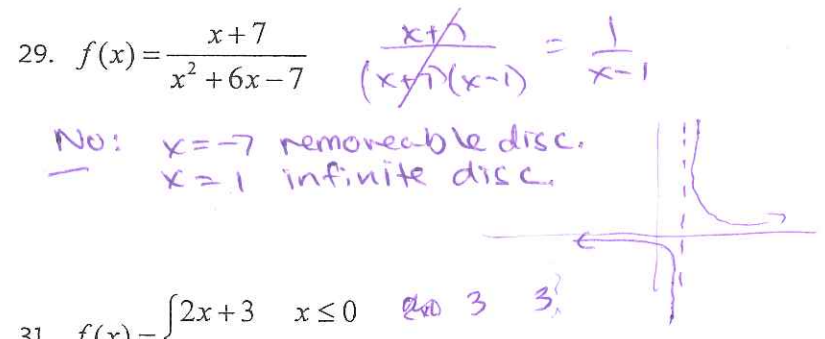 29. f(x) = (x+7)/(x² +6x−7) (x+7)/((x+7)(x-1)) = 1/(x-1)
No: x=-7 removeable disc.
x=1 infinite disc.
31 f(x) = { 2x+3 x ≤ 0 3 3